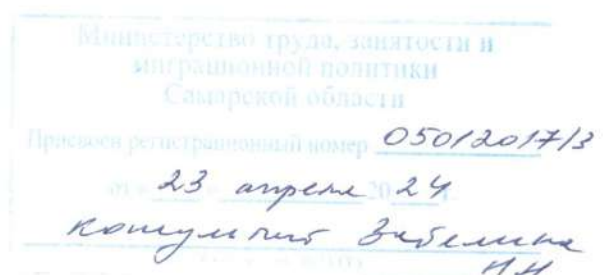 Министерство труда, занятости и
миграционной политики
Самарской области
Присвоен регистрационный номер 05012017/3
от « 23 » апреля 20 24 г.
консультант Забелина